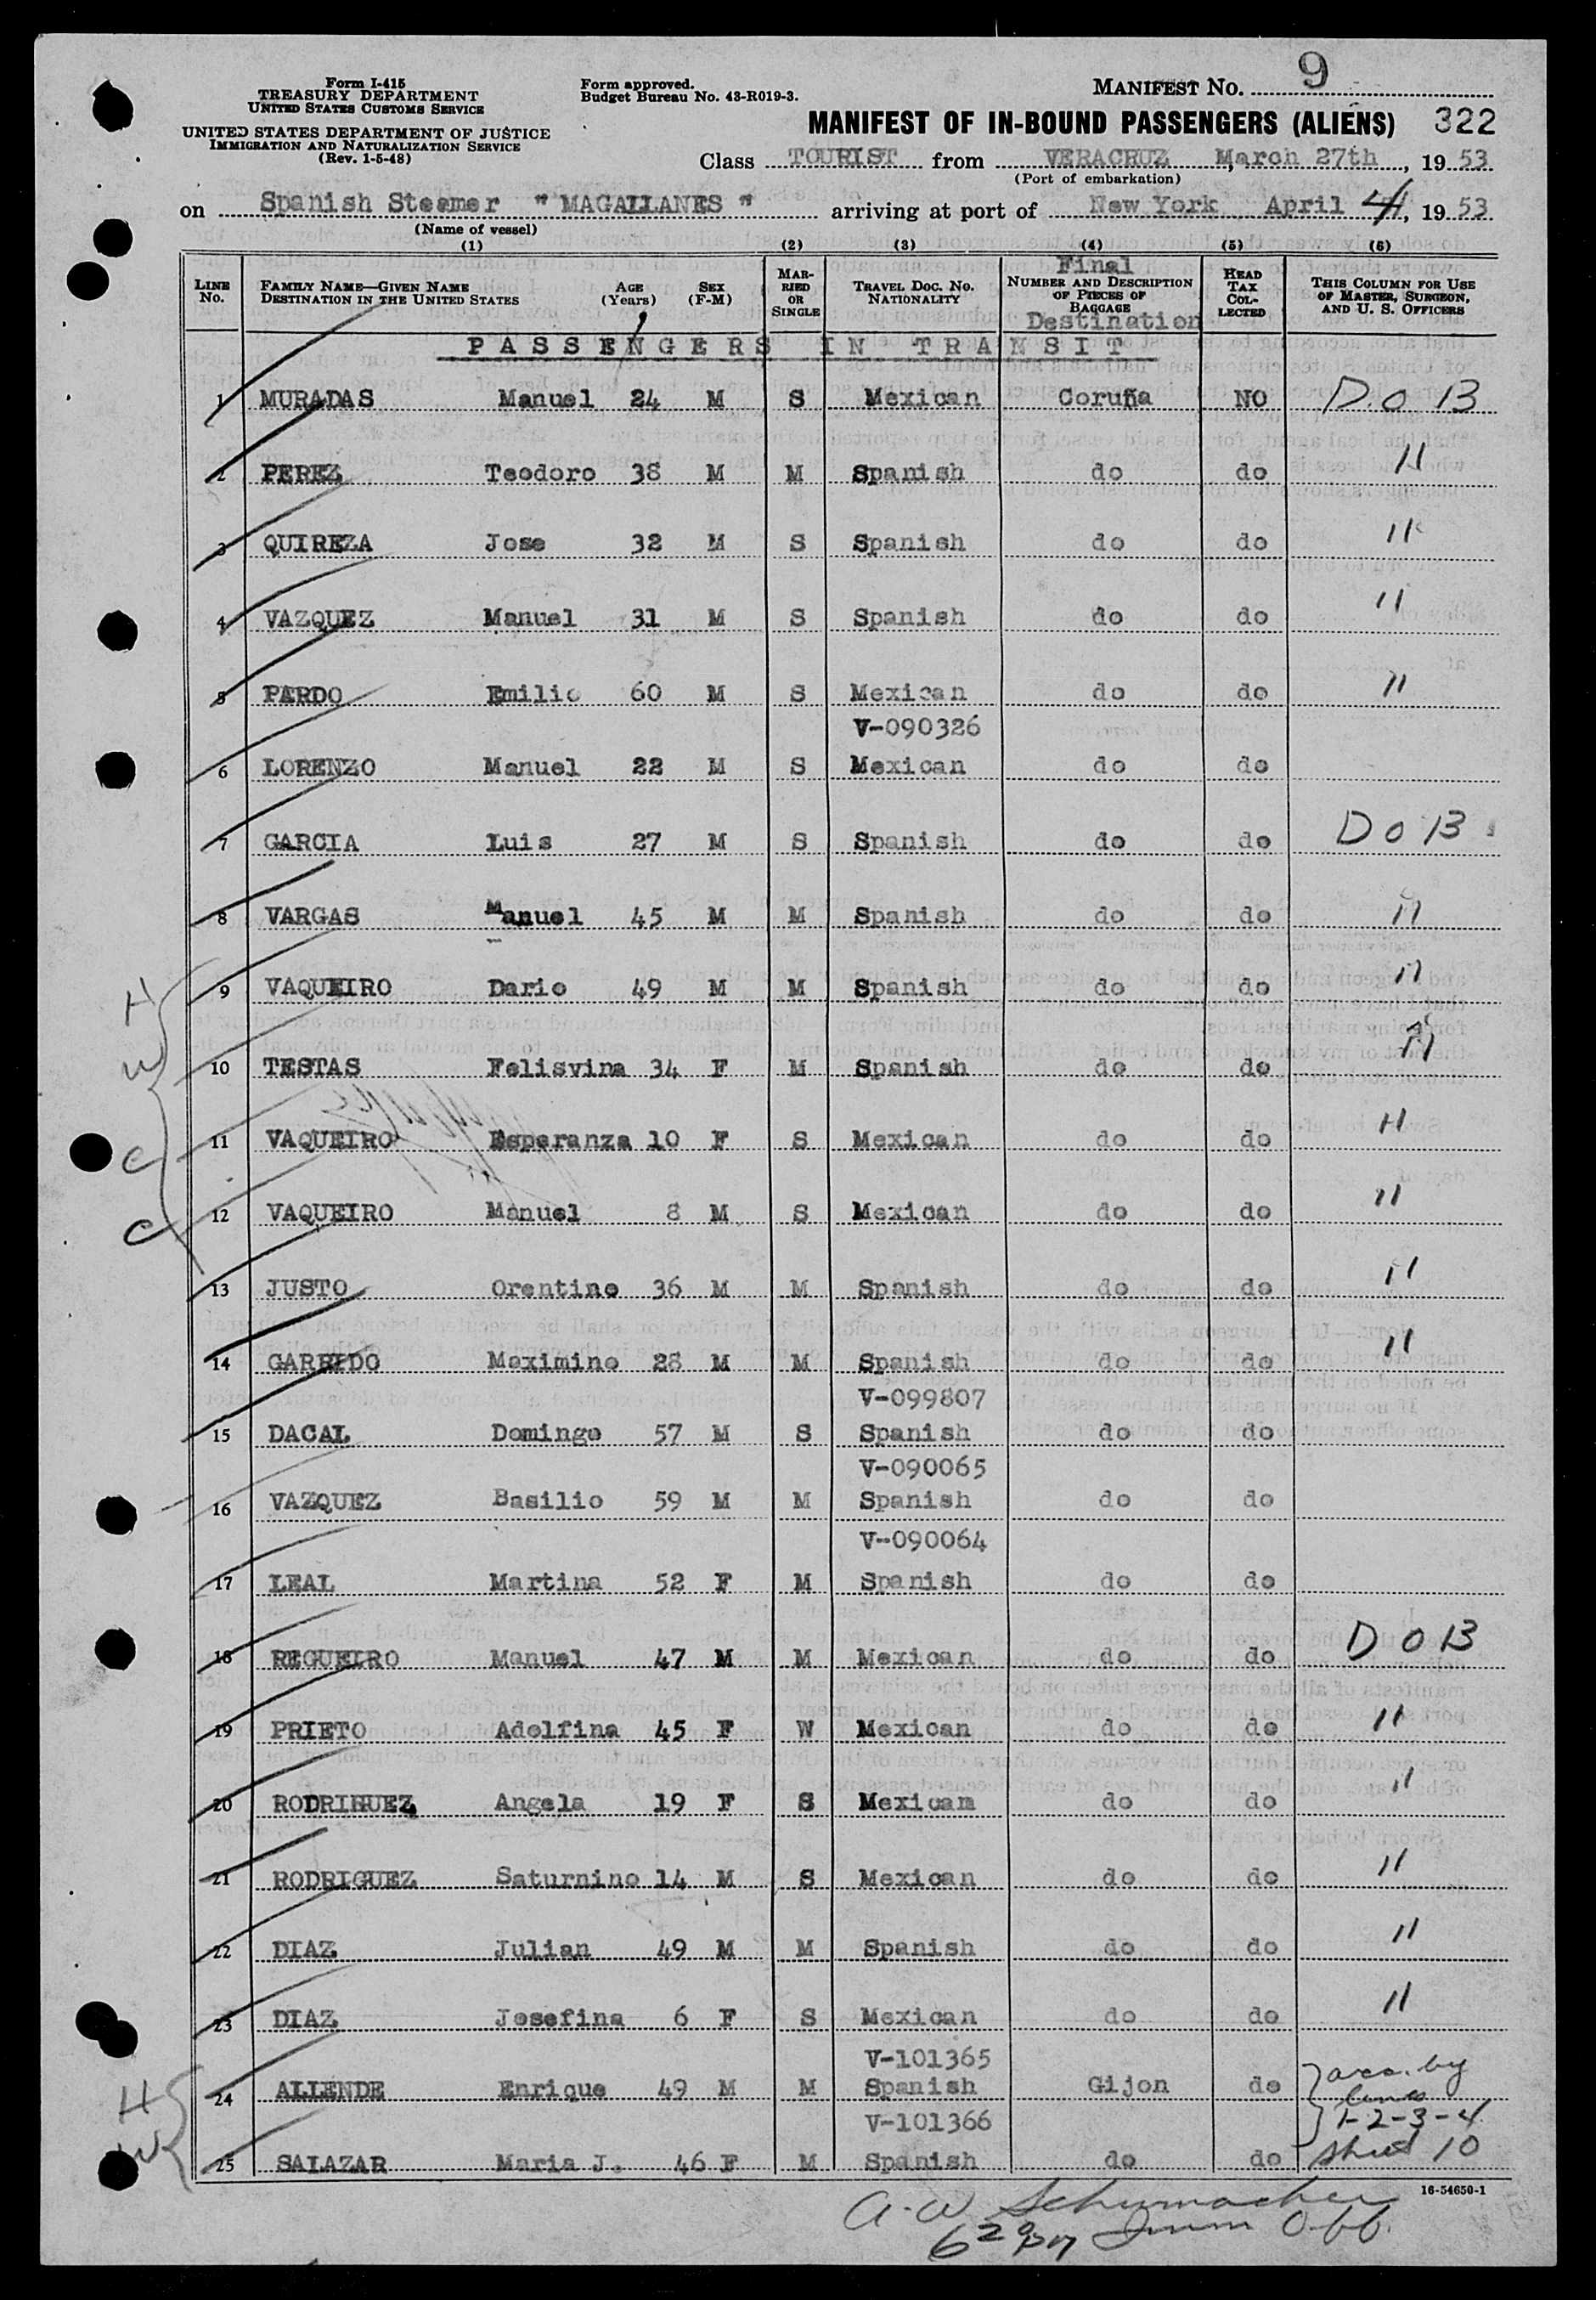 Form I-415
TREASURY DEPARTMENT
UNITED STATES CUSTOMS SERVICE
UNITED STATES DEPARTMENT OF JUSTICE
IMMIGRATION AND NATURALIZATION SERVICE
(Rev. 1-5-48)
Form approved.
Budget Bureau No. 43-R019-3.
MANIFEST NO. 9
MANIFEST OF IN-BOUND PASSENGERS (ALIENS) 322
Class TOURIST from VERACRUZ , March 27th , 19 53
(Port of embarkation)
on Spanish Steamer "MAGALLANES" arriving at port of New York April 4, 19 53
(Name of vessel)
(1) (2) (3) (4) (5) (6)
LINE NO.
FAMILY NAME—GIVEN NAME
DESTINATION IN THE UNITED STATES
AGE (Years)
SEX (F-M)
MARRIED OR SINGLE
TRAVEL DOC. NO.
NATIONALITY
Final
NUMBER AND DESCRIPTION OF PIECES OF BAGGAGE
Destination
HEAD TAX COLLECTED
THIS COLUMN FOR USE OF MASTER, SURGEON, AND U. S. OFFICERS
PASSENGERS IN TRANSIT
1 MURADAS Manuel 24 M S Mexican Coruña NO D.O B
2 PEREZ Teodoro 38 M M Spanish do do "
3 QUIREZA Jose 32 M S Spanish do do "
4 VAZQUEZ Manuel 31 M S Spanish do do "
5 PARDO Emilio 60 M S Mexican do do "
V-090326
6 LORENZO Manuel 22 M S Mexican do do
7 GARCIA Luis 27 M S Spanish do do D O B
8 VARGAS Manuel 45 M M Spanish do do "
H 9 VAQUEIRO Dario 49 M M Spanish do do "
W 10 TESTAS Felisvina 34 F M Spanish do do "
C 11 VAQUEIRO Esperanza 10 F S Mexican do do "
C 12 VAQUEIRO Manuel 8 M S Mexican do do "
13 JUSTO Orentino 36 M M Spanish do do "
14 GARRIDO Maximino 28 M M Spanish do do "
V-099807
15 DACAL Domingo 57 M S Spanish do do
V-090065
16 VAZQUEZ Basilio 59 M M Spanish do do
V-090064
17 LEAL Martina 52 F M Spanish do do
18 REGUEIRO Manuel 47 M M Mexican do do D O B
19 PRIETO Adolfina 45 F W Mexican do do "
20 RODRIHUEZ Angela 19 F S Mexican do do "
21 RODRIGUEZ Saturnino 14 M S Mexican do do "
22 DIAZ Julian 49 M M Spanish do do "
23 DIAZ Josefina 6 F S Mexican do do "
V-101365
H 24 ALLENDE Enrique 49 M M Spanish Gijon do acc. by
lines
V-101366 1-2-3-4
W 25 SALAZAR Maria J. 46 F M Spanish do do sheet 10
16-54650-1
A. W. Schumacher
Imm Off.